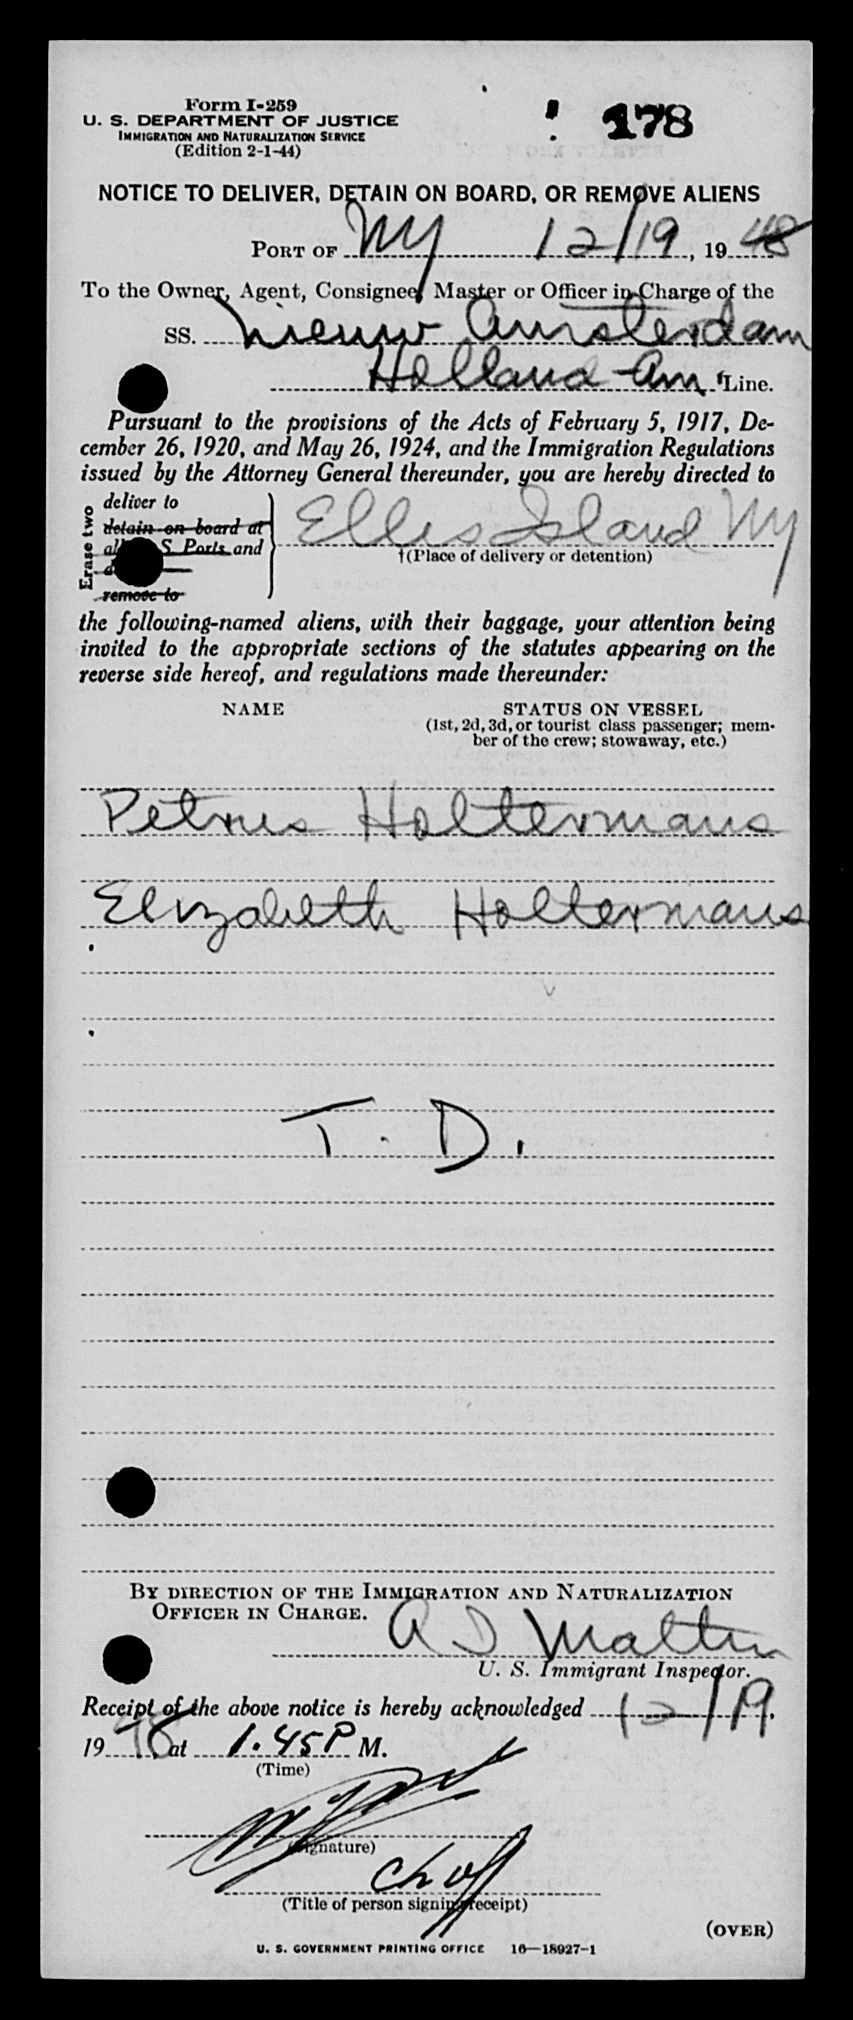 Form I-259
U. S. DEPARTMENT OF JUSTICE
IMMIGRATION AND NATURALIZATION SERVICE
(Edition 2-1-44)
178
NOTICE TO DELIVER, DETAIN ON BOARD, OR REMOVE ALIENS
PORT OF NY 12/19, 19 48
To the Owner, Agent, Consignee, Master or Officer in Charge of the
SS. Nieuw Amsterdam
Holland-Am Line.
Pursuant to the provisions of the Acts of February 5, 1917, De-
cember 26, 1920, and May 26, 1924, and the Immigration Regulations
issued by the Attorney General thereunder, you are hereby directed to
Erase two
deliver to
detain on board at
all S. Ports and
remove to
Ellis Island NY
†(Place of delivery or detention)
the following-named aliens, with their baggage, your attention being
invited to the appropriate sections of the statutes appearing on the
reverse side hereof, and regulations made thereunder:
NAME STATUS ON VESSEL
(1st, 2d, 3d, or tourist class passenger; mem-
ber of the crew; stowaway, etc.)
Petrus Holtermans
Elizabeth Holtermans
T. D.
BY DIRECTION OF THE IMMIGRATION AND NATURALIZATION
OFFICER IN CHARGE.
U. S. Immigrant Inspector.
Receipt of the above notice is hereby acknowledged 12/19,
19 48 at 1.45 P M.
(Time)
(Signature)
(Title of person signing receipt)
(OVER)
U. S. GOVERNMENT PRINTING OFFICE 16—18927-1